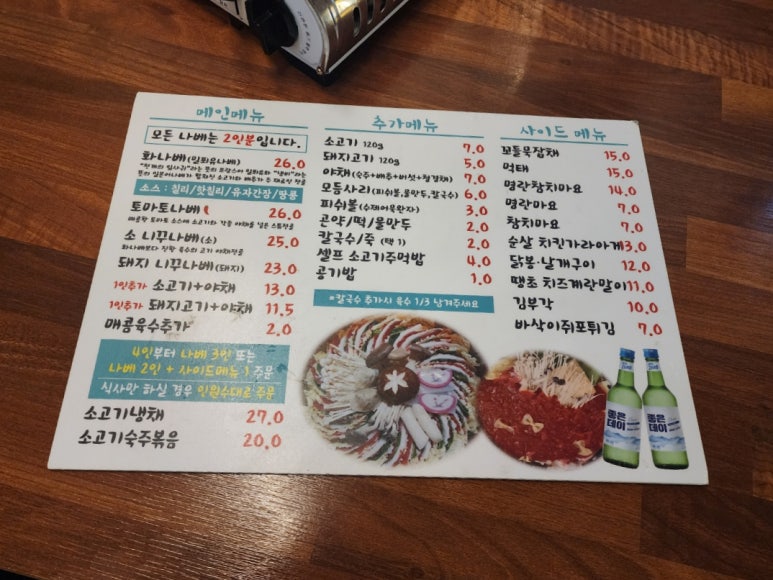 메인메뉴
모든 나베는 2인분입니다.
화나베(밀푀유나베) 26.0
소스 : 칠리/핫칠리/유자간장/땅콩
토마토나베 26.0
매콤한 토마토 소스에 소고기와 각종 야채를 넣은 스튜전골
소 니꾸나베(소) 25.0
화나베보다 진한 육수의 고기 야채전골
돼지 니꾸나베(돼지) 23.0
1인추가 소고기+야채 13.0
1인추가 돼지고기+야채 11.5
매콤육수추가 2.0
4인부터 나베 3인 또는
나베 2인 + 사이드메뉴 1 주문
식사만 하실 경우 인원수대로 주문
소고기냉채 27.0
소고기숙주볶음 20.0
추가메뉴
소고기 120g 7.0
돼지고기 120g 5.0
야채(숙주+배추+버섯+청경채) 7.0
모듬사리(피쉬볼,물만두,칼국수) 6.0
피쉬볼(수제어묵완자) 3.0
곤약/떡/물만두 2.0
칼국수/죽 (택 1) 2.0
셀프 소고기주먹밥 4.0
공기밥 1.0
*칼국수 추가시 육수 1/3 남겨주세요
사이드 메뉴
꼬들목잡채 15.0
먹태 15.0
명란참치마요 14.0
명란마요 7.0
참치마요 7.0
순살 치킨가라아게 13.0
닭봉·날개구이 12.0
땡초 치즈계란말이 11.0
김부각 10.0
바삭이쥐포튀김 7.0
좋은
데이
좋은
데이